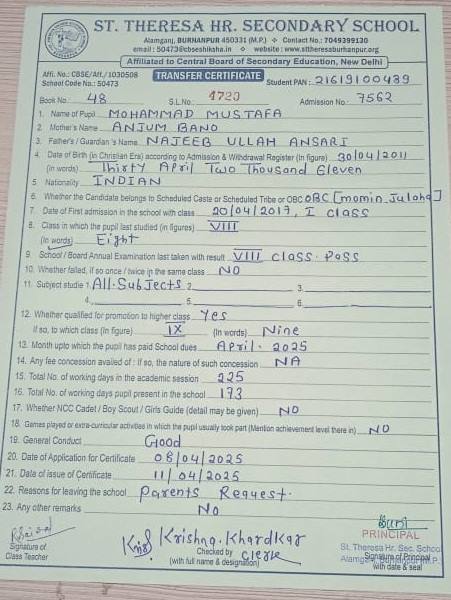 ST. THERESA HR. SECONDARY SCHOOL
Alamganj, BURHANPUR 450331 (M.P.) • Contact No.: 7049399130
email : 50473@cbseshiksha.in • website : www.sttheresaburhanpur.org
Affiliated to Central Board of Secondary Education, New Delhi
Affi. No.: CBSE/Aff./1030508 TRANSFER CERTIFICATE Student PAN : 21619100489
School Code No.: 50473
Book No. 48 S.L No. 4720 Admission No. 7562
1. Name of Pupil MOHAMMAD MUSTAFA
2. Mother's Name ANJUM BANO
3. Father's / Guardian's Name NAJEEB ULLAH ANSARI
4. Date of Birth (in Christian Era) according to Admission & Withdrawal Register (In figure) 30/04/2011
(in words) Thirty April Two Thousand Eleven
5. Nationality INDIAN
6. Whether the Candidate belongs to Scheduled Caste or Scheduled Tribe or OBC OBC [momin Julaha]
7. Date of First admission in the school with class 20/04/2017, I class
8. Class in which the pupil last studied (in figures) VIII
(In words) Eight
9. School / Board Annual Examination last taken with result VIII class. Pass
10. Whether failed, if so once / twice in the same class NO
11. Subject studie 1. All. Subjects 2. 3.
4. 5. 6.
12. Whether qualified for promotion to higher class Yes
If so, to which class (In figure) IX (In words) Nine
13. Month upto which the pupil has paid School dues April. 2025
14. Any fee concession availed of : If so, the nature of such concession NA
15. Total No. of working days in the academic session 225
16. Total No. of working days pupil present in the school 173
17. Whether NCC Cadet / Boy Scout / Girls Guide (detail may be given) NO
18. Games played or extra-curricular activities in which the pupil usually took part (Mention achievement level there in) NO
19. General Conduct Good
20. Date of Application for Certificate 08/04/2025
21. Date of issue of Certificate 11/04/2025
22. Reasons for leaving the school Parents Request.
23. Any other remarks No
Krishna. Khardkar
clerk
PRINCIPAL
St. Theresa Hr. Sec. School
Signature of
Class Teacher
Checked by
(with full name & designation)
Signature of Principal
with date & seal